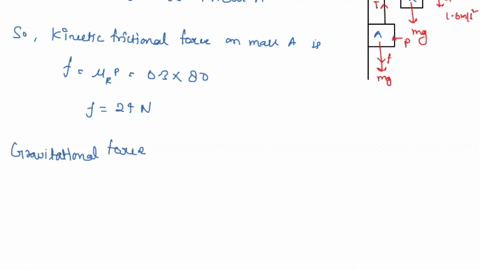 So, Kinetic frictional force on mass A is
f = μ_k P = 0.3 × 80
f = 24 N
Gravitational force
T
A
P
f
mg
mg
1.6m/s²